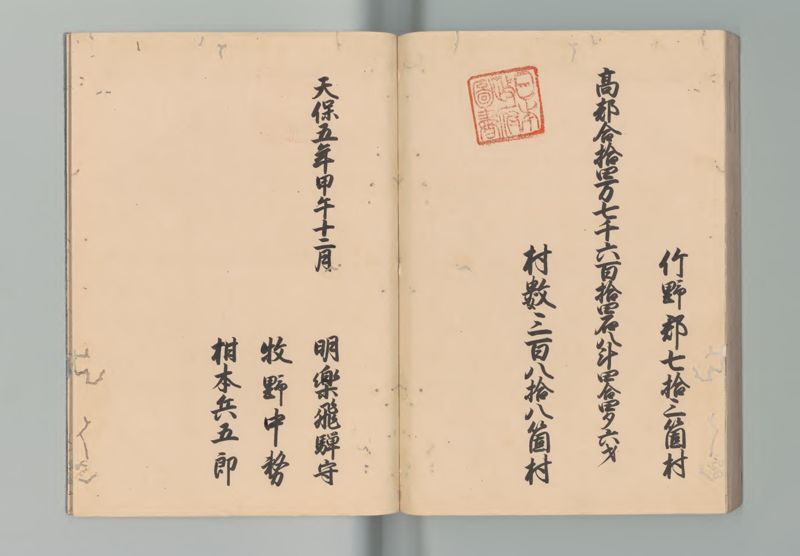 竹野郡七拾三箇村
高都合拾四万七千六百拾四石八斗四合四夕六才
村数三百八拾八箇村
日本
政府
圖書
天保五年甲午十二月
明樂飛騨守
牧野中務
柑本兵五郎